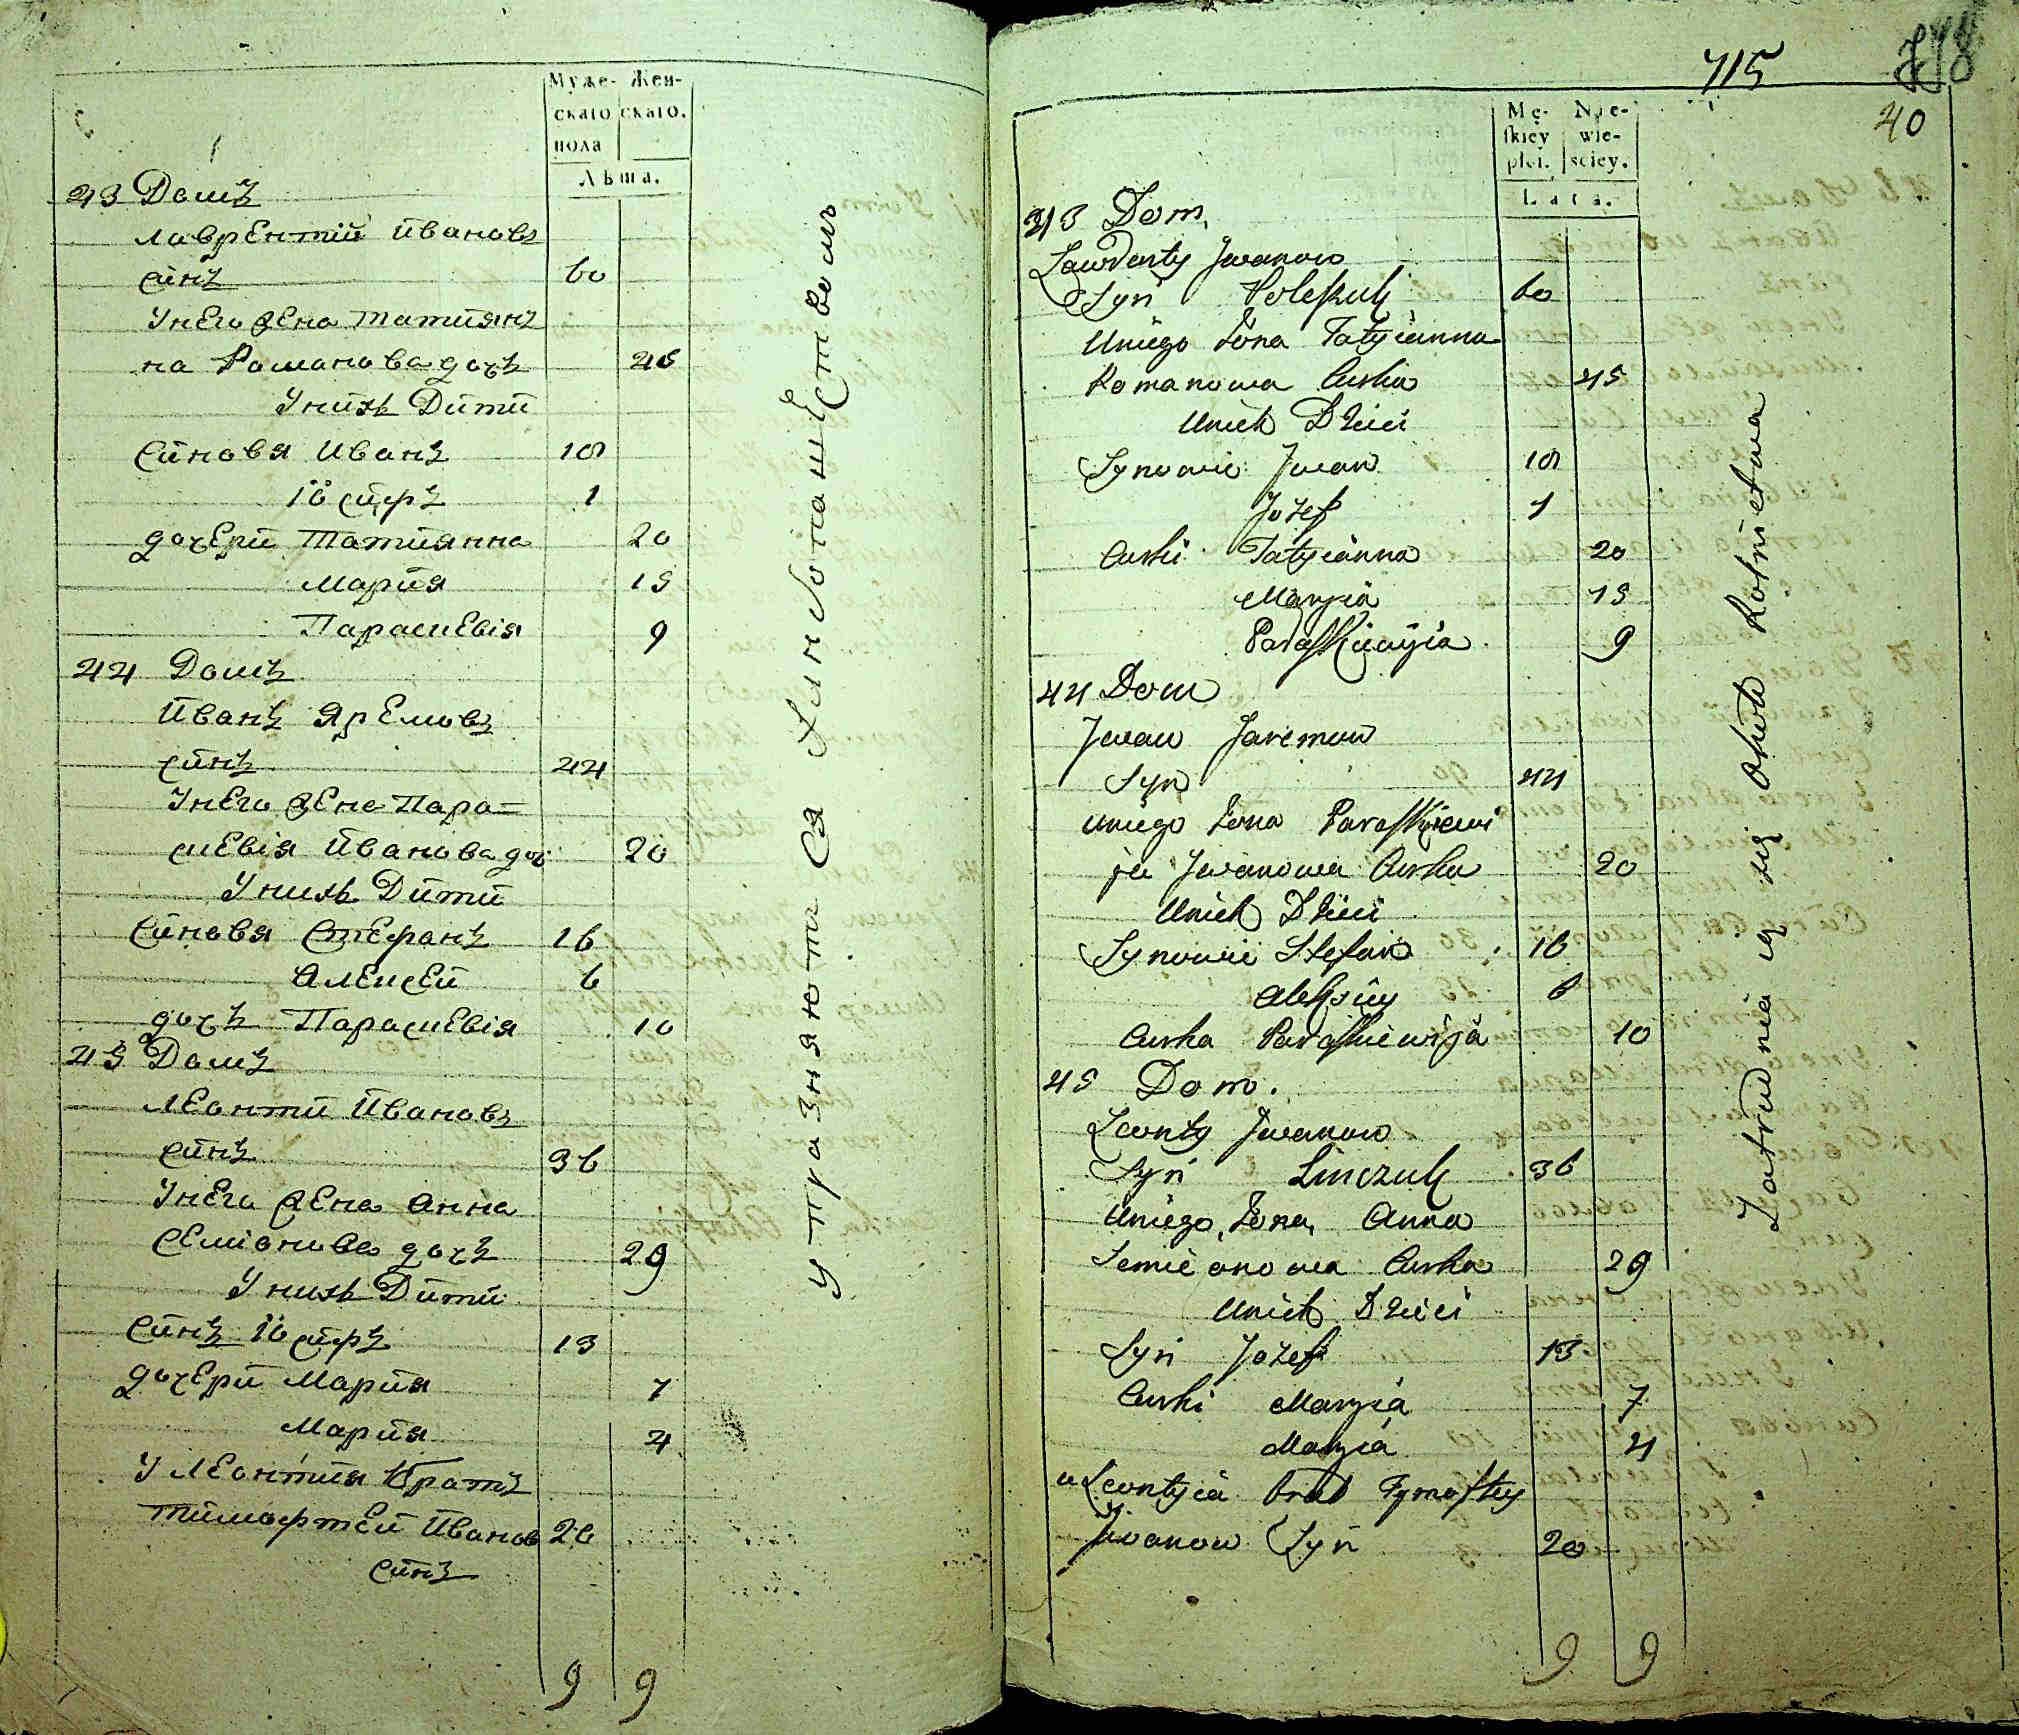 Муже- Жен-
скаго скаго.
пола
Лѣта.
43 Домъ
Лаврентій Ивановъ
синъ 60
У него жена Татиян
на Романова дочъ 45
У нихъ Дити
Синовя Иванъ 18
Іосифъ 1
дочери Татиянна 20
Мария 15
Параскевія 9
44 Домъ
Иванъ Яремовъ
синъ 44
У него жена Пара=
скевія Иванова доч 20
У нихъ Дити
Синовя Стефанъ 16
Алексей 6
дочъ Параскевія 10
45 Домъ
Леонтий Ивановъ
синъ 36
У него жена Анна
Семіонова дочъ 29
У нихъ Дити
Синъ Іосифъ 13
дочери Мария 7
Мария 4
У Леонтия братъ
Тимофтей Иванов 20
синъ
9 9
упразняюти ся хлибопашествомъ
715
40
Mę- Nie-
skiey wie-
płci. sciey.
Lata.
43 Dom
Lawrenty Jwanow
Syn Poleszuk 60
Uniego Żona Tatyianna
Romanowa Curka 45
Unich Dzieci
Synowie Jwan 18
Jozef 1
Curki Tatyianna 20
Maryia 15
Paraskiewyia 9
44 Dom
Jwan Jaremow
Syn 44
uniego Żona Paraskiewi
ja Jwanowa Curka 20
Unich Dzieci
Synowie Stefan 16
Alexiey 6
Curka Paraskiewija 10
45 Dom.
Leonty Jwanow
Syn Linczuk 36
Uniego Żona Anna
Semieonowa Curka 29
Unich Dzieci
Syn Jozef 13
Curki Maryia 7
Maryia 4
u Leontyia brat Tymoftey
Jwanow Syn 20
9 9
Zatrudniaią się około Rolnictwa